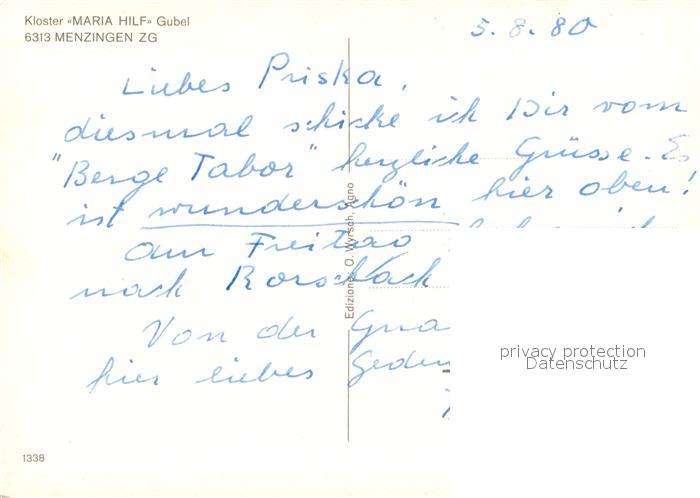 Kloster «MARIA HILF» Gubel
6313 MENZINGEN ZG
5.8.80
Liebes Priska,
diesmal schicke ich Dir vom
"Berge Tabor" herzliche Grüsse. Es
ist wunderschön hier oben!
Am Freitag
nach Rorschach
Von der Gna
hier liebes Geden
Edizioni O. Wyrsch, Agno
privacy protection
Datenschutz
1338